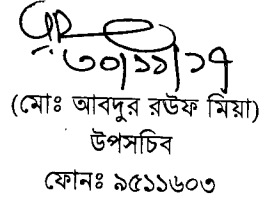 ৩০/১১/১৭
(মোঃ আবদুর রউফ মিয়া)
উপসচিব
ফোনঃ ৯৫১১৬০৩